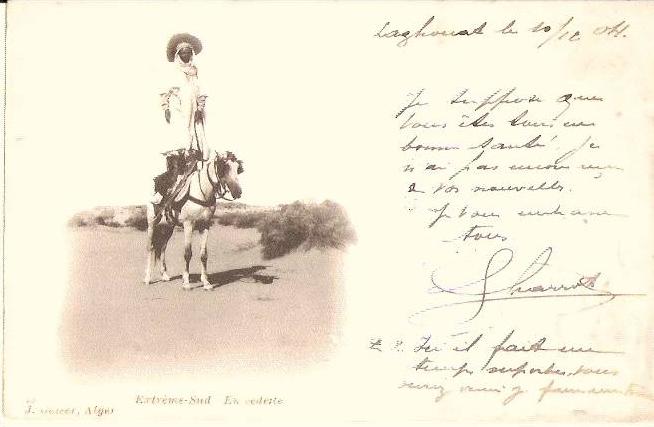 Laghouat le 10/12 04.
Je suppose que
vous êtes tous en
bonne santé. Je
n'ai pas encore
vos nouvelles.
Je vous embrasse
tous
Ici il fait un
temps superbe, vous
Extrême-Sud En vedette
J. Geiser, Alger